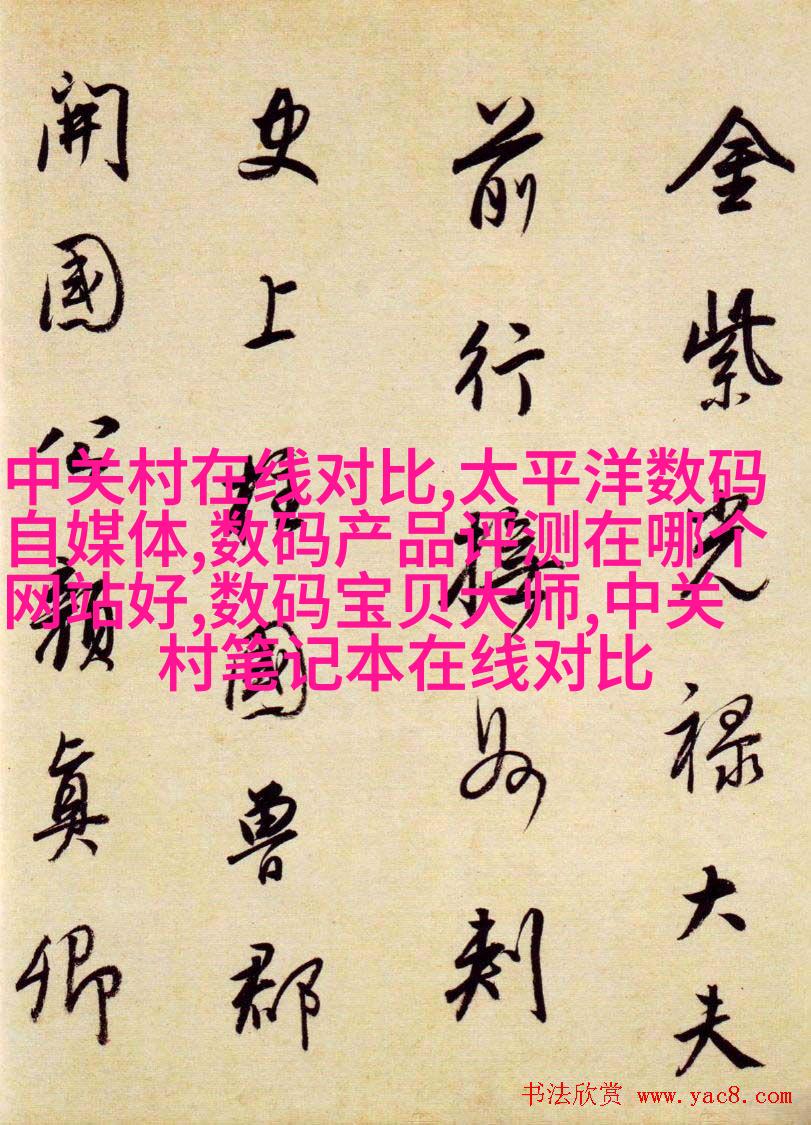 金紫光禄大夫
前行撫州刺
史上柱國魯郡
開國公顏真卿
中关村在线对比,太平洋数码
自媒体,数码产品评测在哪个
网站好,数码宝贝大师,中关
村笔记本在线对比
书法欣赏 www.yac8.com